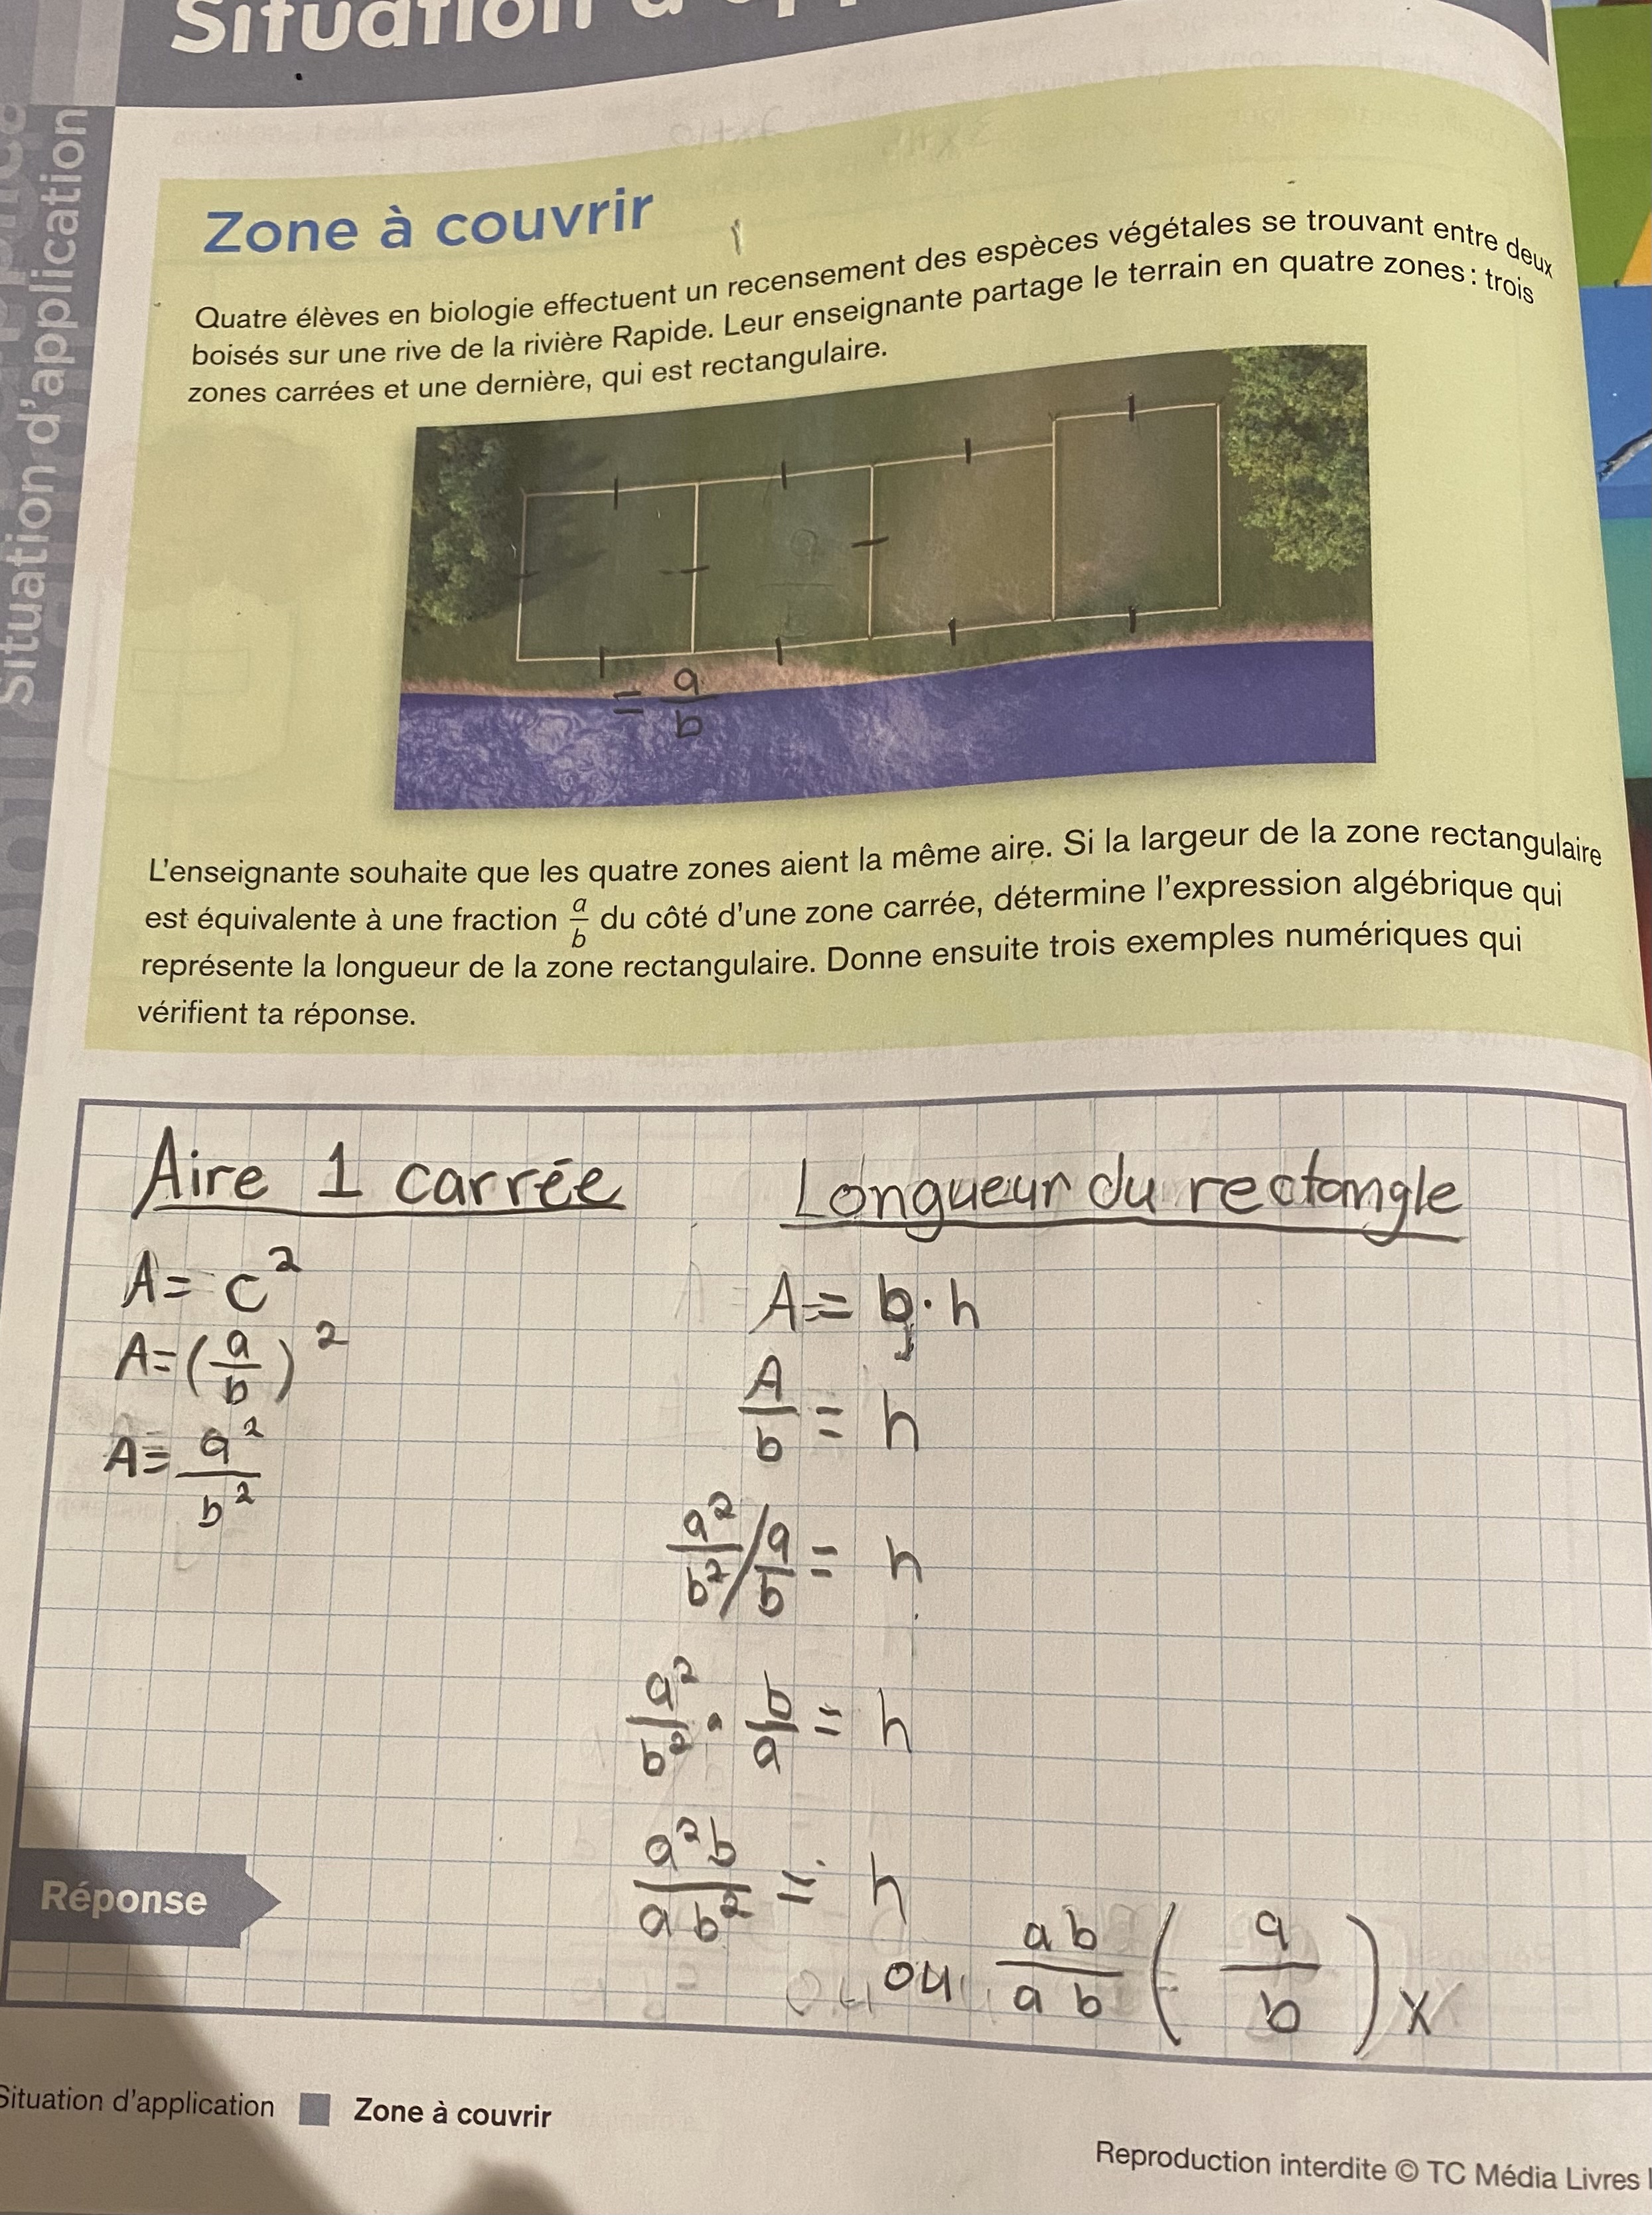 Situation d'app
Situation d'application
Zone à couvrir
Quatre élèves en biologie effectuent un recensement des espèces végétales se trouvant entre deux
boisés sur une rive de la rivière Rapide. Leur enseignante partage le terrain en quatre zones : trois
zones carrées et une dernière, qui est rectangulaire.
= a/b
L'enseignante souhaite que les quatre zones aient la même aire. Si la largeur de la zone rectangulaire
est équivalente à une fraction a/b du côté d'une zone carrée, détermine l'expression algébrique qui
représente la longueur de la zone rectangulaire. Donne ensuite trois exemples numériques qui
vérifient ta réponse.
Aire 1 carrée
A = c²
A = (a/b)²
A = a²/b²
Longueur du rectangle
A = b · h
A/b = h
a²/b² / a/b = h
a²/b² · b/a = h
a²b/ab² = h
ou ab/ab (a/b) x
Réponse
Situation d'application Zone à couvrir
Reproduction interdite © TC Média Livres